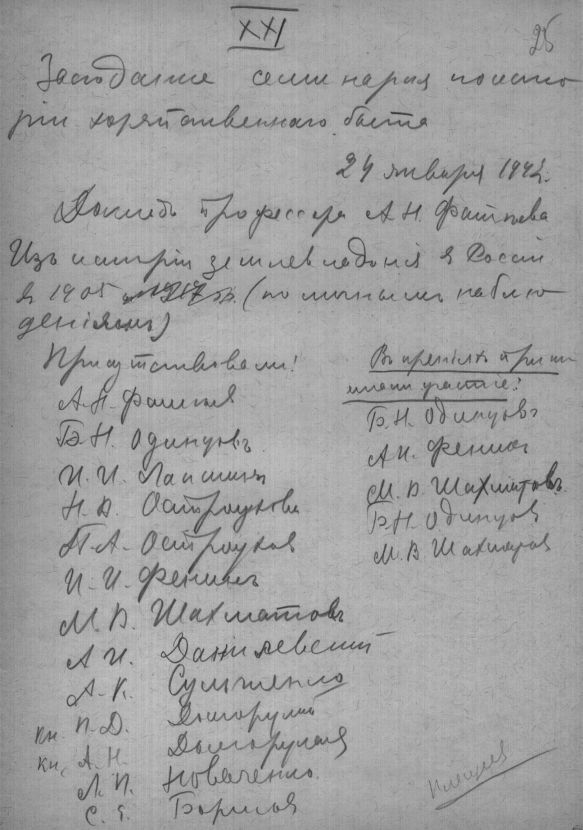 XXI
26
Заседание семинария по исто
рiи хозяйственнаго быта
24 января 1942.
Доклад профессора А.Н. Фатѣева
Изъ исторiи землевладѣнiя в Россiи
в 1905 (по личнымъ наблю
денiямъ)
Присутствовали:
А.Н. Фатѣев
Б.Н. Одинцовъ
И.И. Лапшинъ
Н.В. Остроухова
П.А. Остроухов
И.И. Фенинъ
М.В. Шахматовъ
А.И. Данилевский
А.К. Сульженко
кн. П.Д. Долгорукий
кн. А.Н. Долгорукая
Л.П. Новаченко.
С.Я. Борисов
В пренiяхъ приня
имали участiе:
Б.Н. Одинцовъ
А.И. Фенинъ
М.В. Шахматовъ.
Б.Н. Одинцов
М.В Шахматов